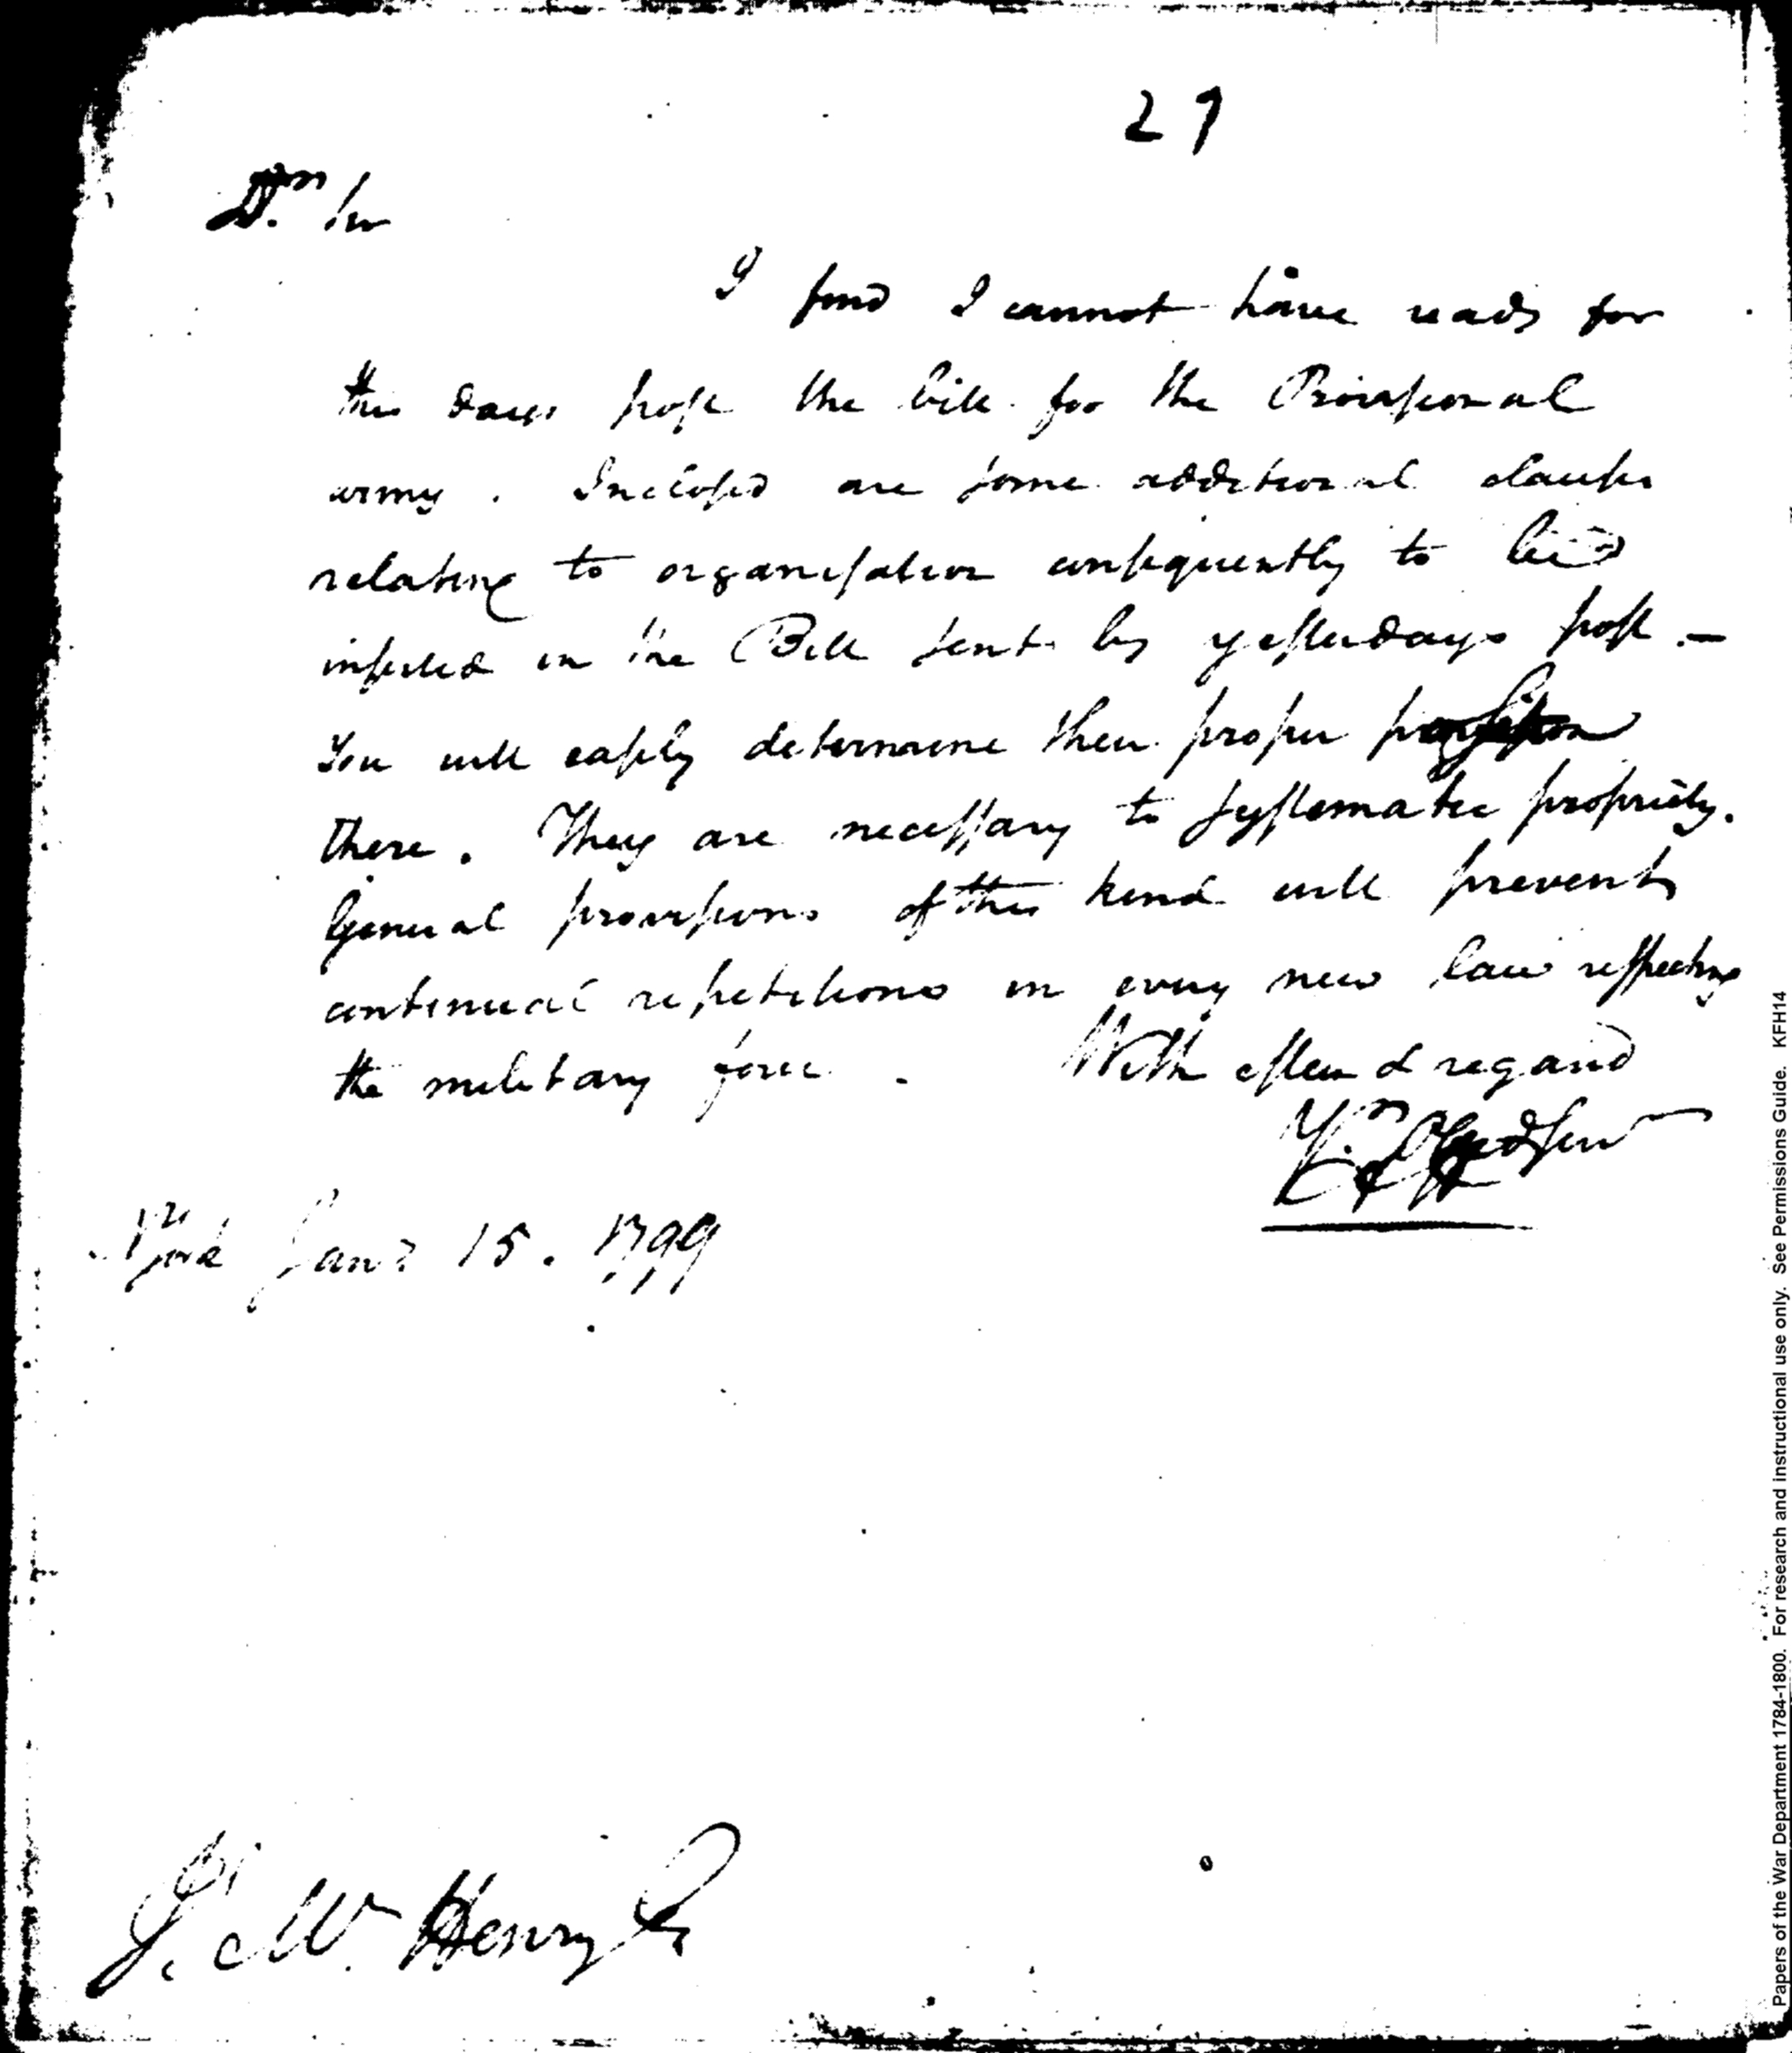 27
Dr. Sir
I find I cannot have ready for
this days post the bill for the Provisional
army. Inclosed are some additional clauses
relating to organisation consequently to be
inserted in the Bill sent by yesterdays post –
You will easily determine their proper position
there. They are necessary to systematic propriety.
General provisions of this kind will prevent
continual repetitions in every new law respecting
the military force. With esteem & regard
Yr. Obed ser
N York Jany 15. 1799
J. Mc Henry Esq
Papers of the War Department 1784-1800. For research and instructional use only. See Permissions Guide. KFH14